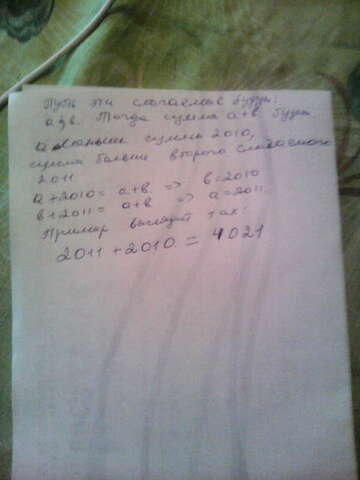 Пусть эти слагаемые будут:
а, в. Тогда сумма а+в. будет
а меньше суммы 2010,
сумма больше второго слагаемого
2011
а+2010= а+в. => в=2010
в+2011= а+в => а=2011.
Пример выглядит так:
2011+2010. = 4021